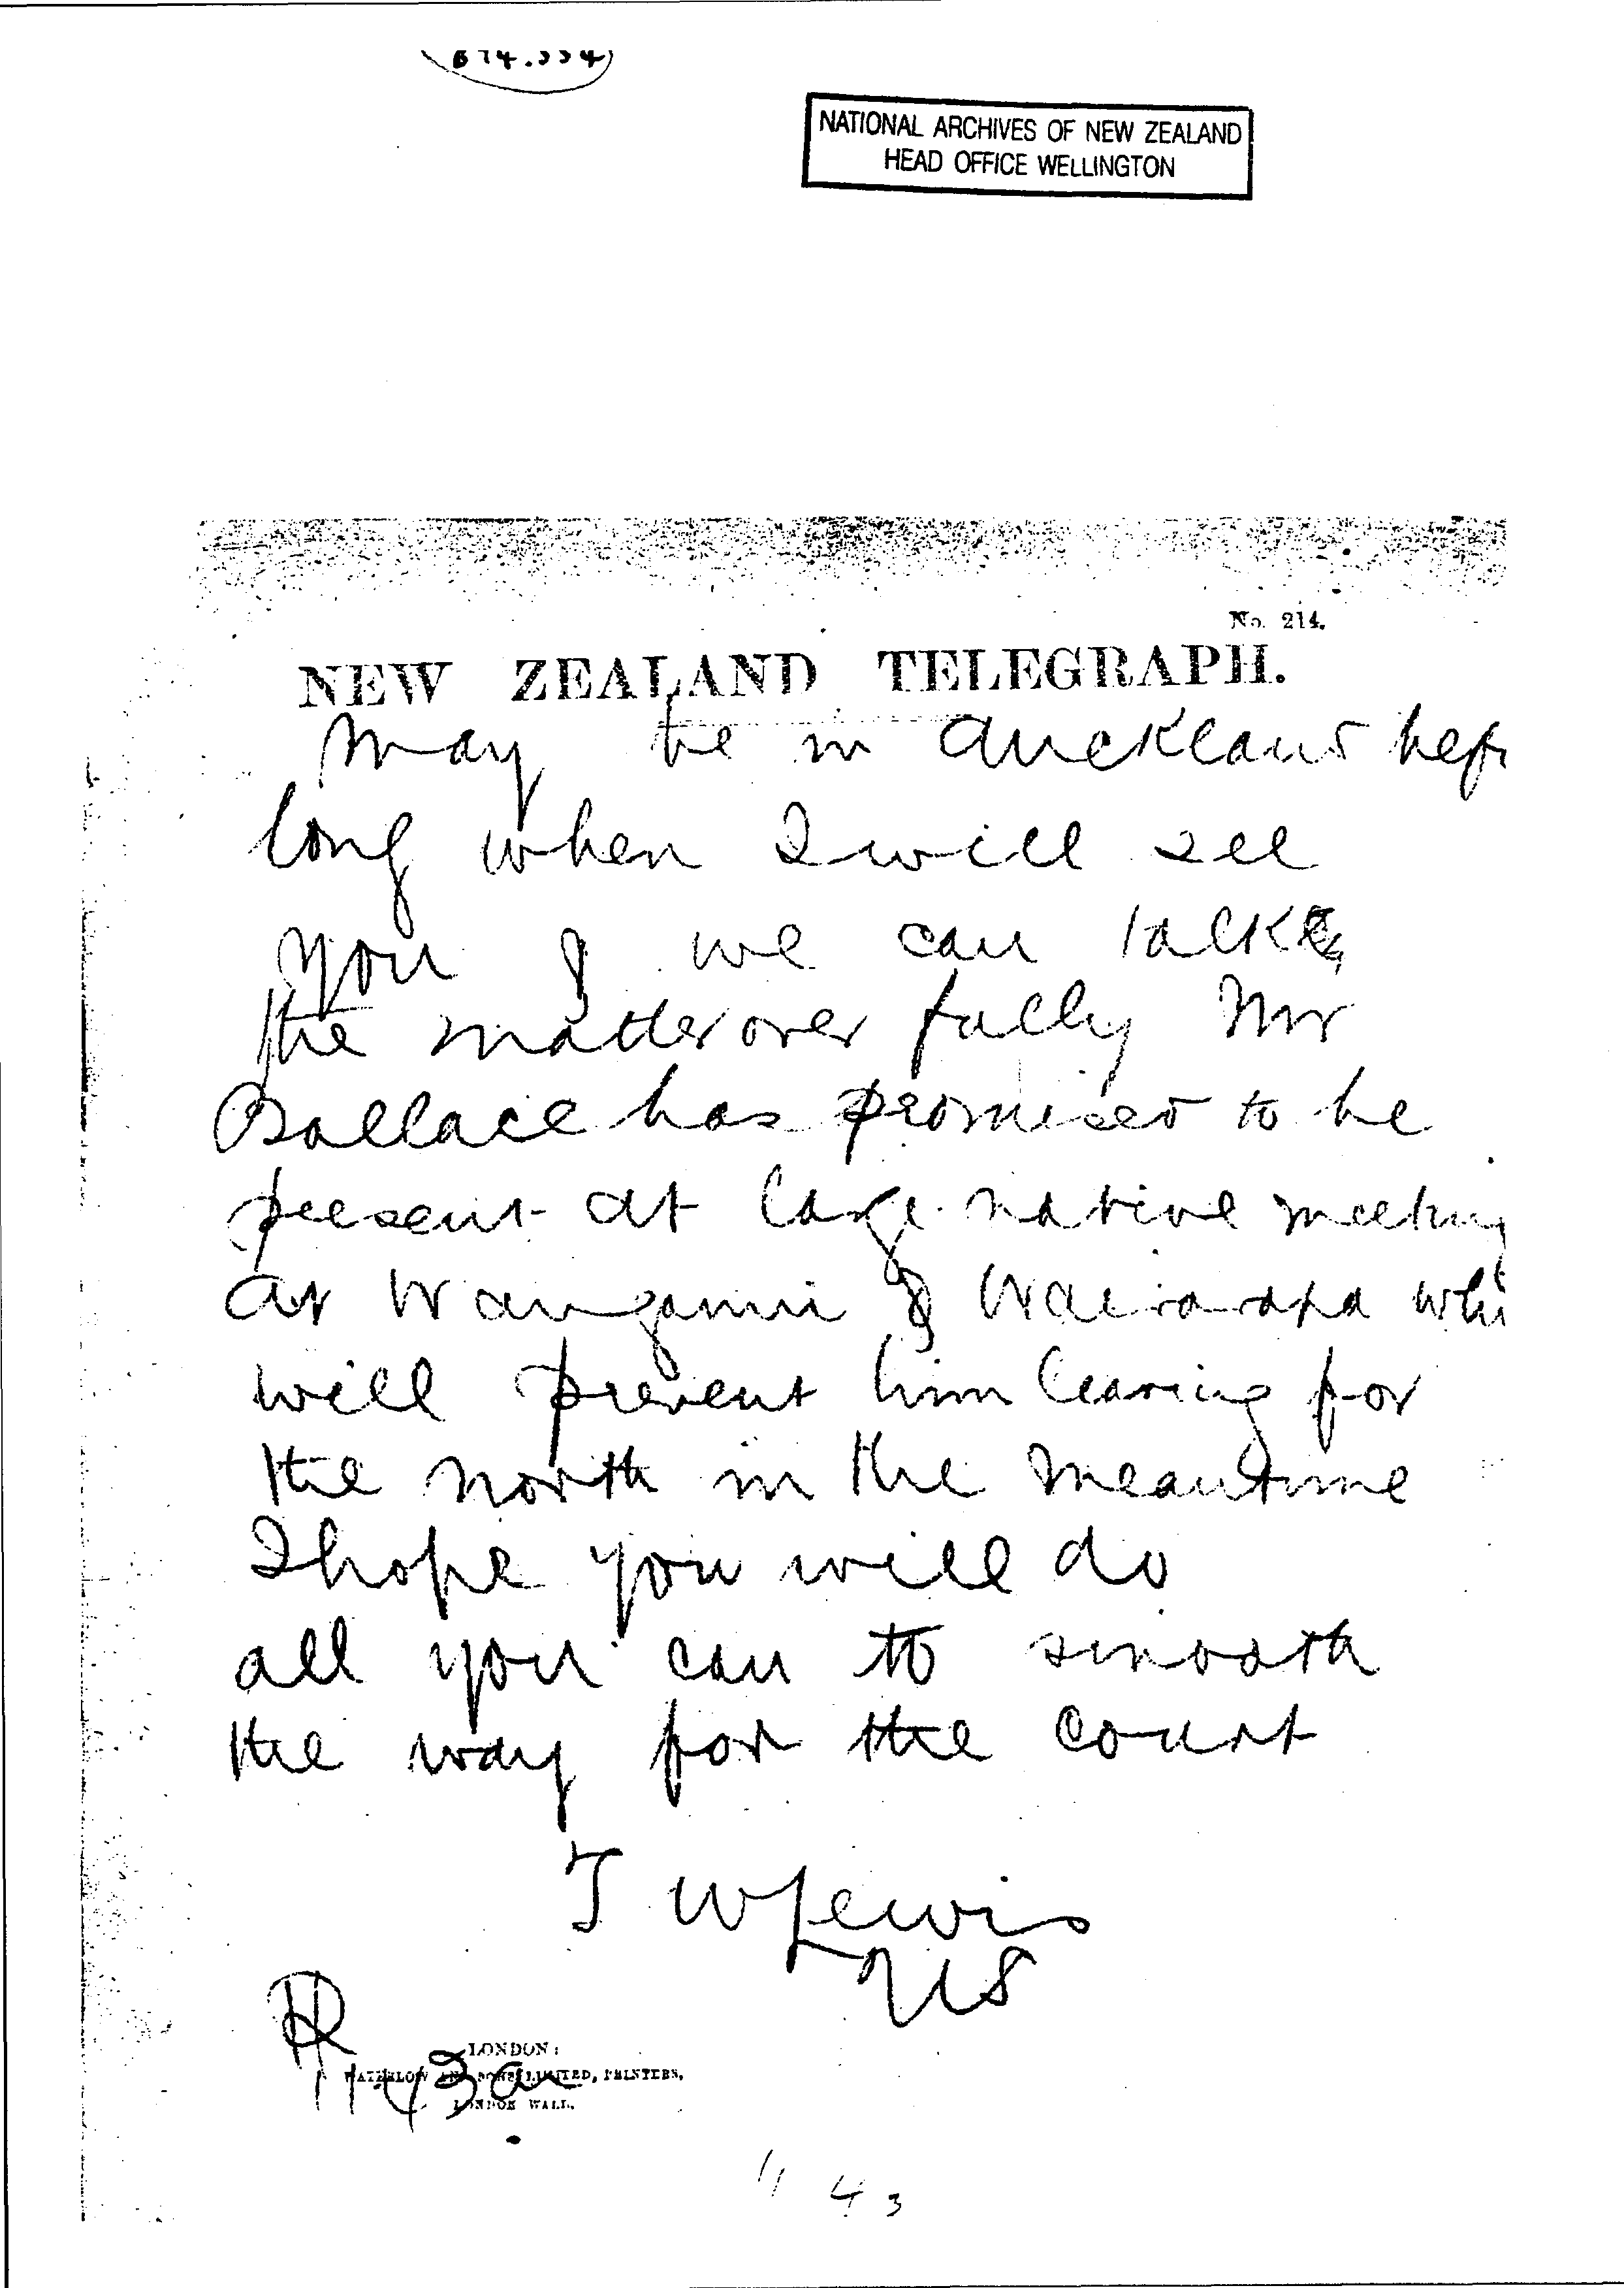 NATIONAL ARCHIVES OF NEW ZEALAND
HEAD OFFICE WELLINGTON
No. 214.
NEW ZEALAND TELEGRAPH.
May be in Auckland befr
long when I will see
you & we can talk
the matter over fully Mr
Ballace has promised to be
present at large native meeting
at Wanganui & Wairarapa whi
will prevent him leaving for
the north in the meantime
I hope you will do
all you can to smooth
the way for the court
T W Lewis
US
LONDON:
WATERLOW AND SONS LIMITED, PRINTERS,
LONDON WALL.
11 43